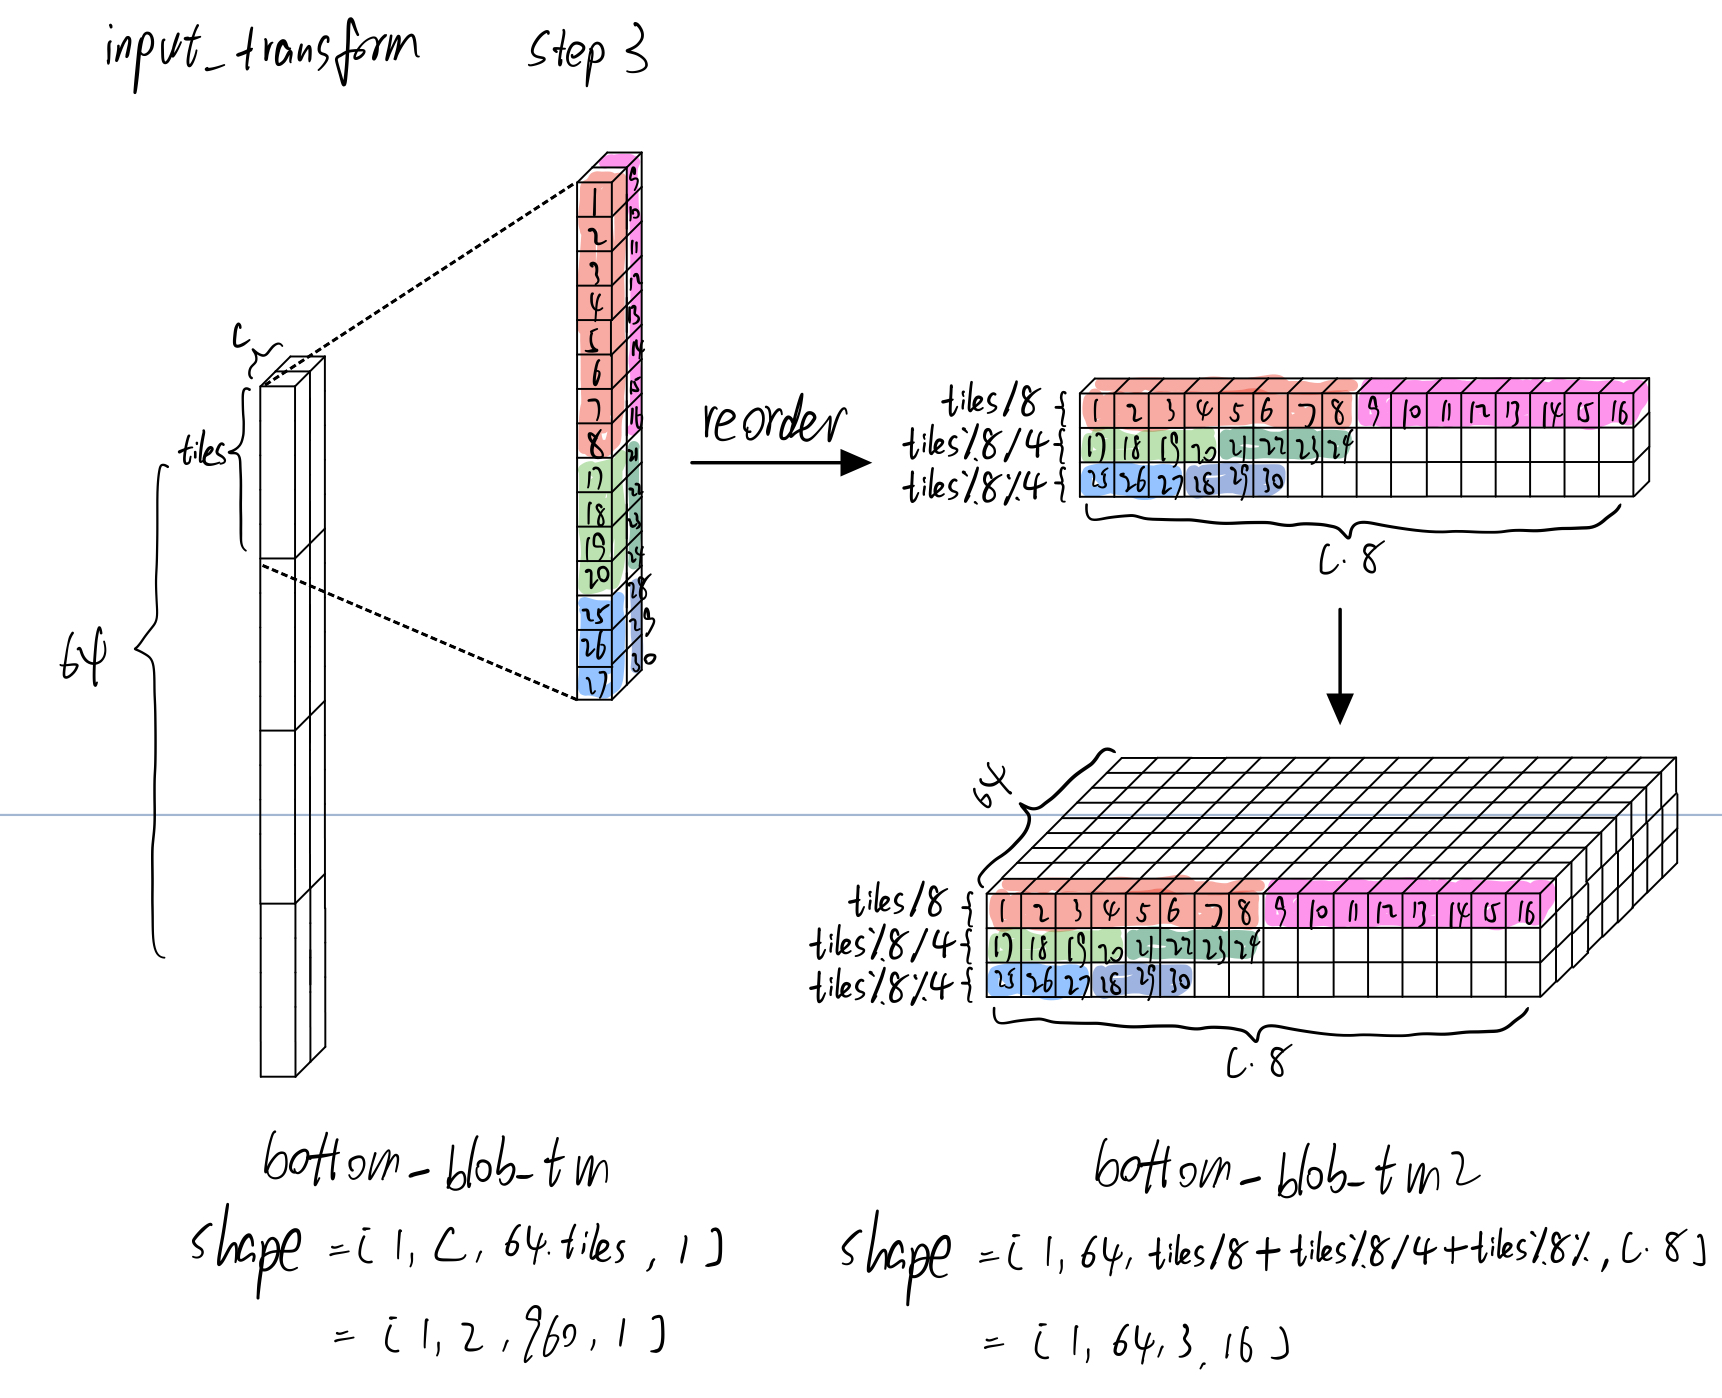 input_transform step 3
C
tiles
64
1
2
3
4
5
6
7
8
17
18
19
20
25
26
27
9
10
11
12
13
14
15
16
21
22
23
24
28
29
30
reorder
tiles/8 { 1 2 3 4 5 6 7 8 9 10 11 12 13 14 15 16
tiles%8/4 { 17 18 19 20 21 22 23 24
tiles%8%4 { 25 26 27 18 29 30
C·8
64
tiles/8 { 1 2 3 4 5 6 7 8 9 10 11 12 13 14 15 16
tiles%8/4 { 17 18 19 20 21 22 23 24
tiles%8%4 { 25 26 27 18 29 30
C·8
bottom_blob_tm
shape = [1, C, 64·tiles, 1]
= [1, 2, 960, 1]
bottom_blob_tm2
shape = [1, 64, tiles/8 + tiles%8/4 + tiles%8%, C·8]
= [1, 64, 3, 16]